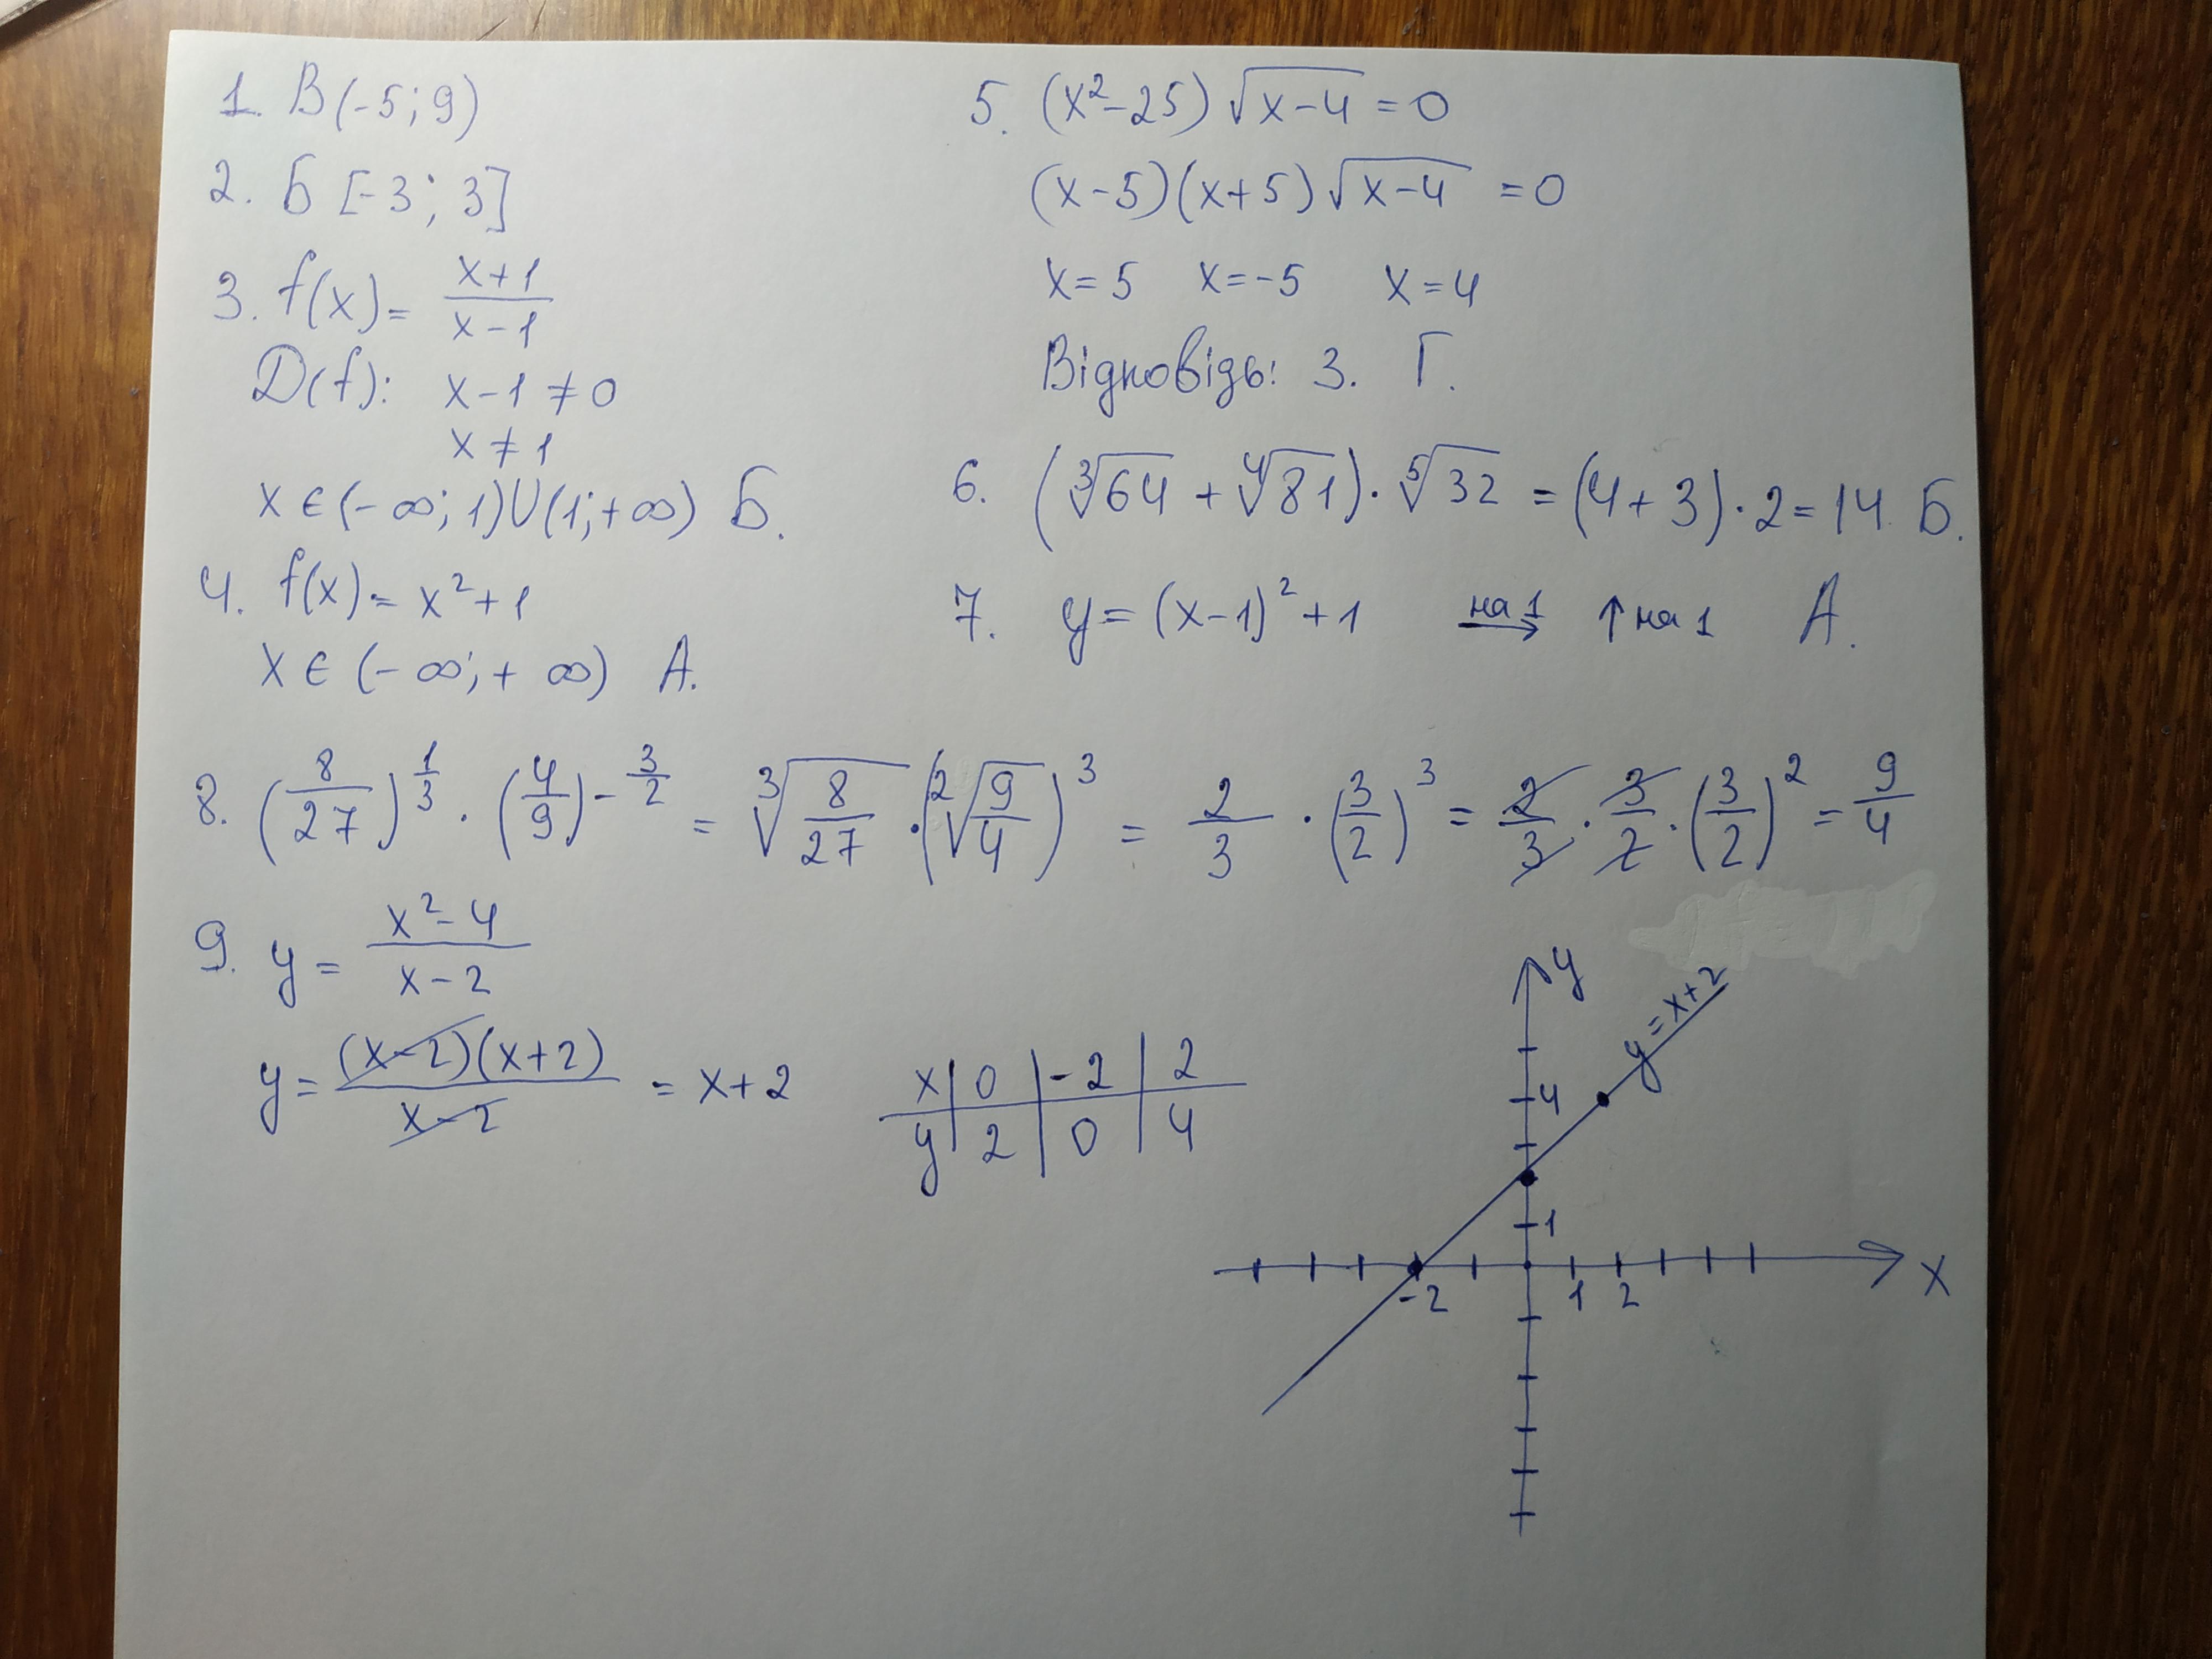 1. В (-5; 9)
2. Б [-3; 3]
3. f(x) = (x+1)/(x-1)
D(f): x-1 ≠ 0
x ≠ 1
x ∈ (-∞; 1) U (1; +∞) Б.
4. f(x) = x² + 1
x ∈ (-∞; + ∞) А.
5. (x²-25) √(x-4) = 0
(x-5)(x+5) √(x-4) = 0
x = 5 x = -5 x = 4
Відповідь: 3. Г.
6. (∛64 + ∜81) · ⁵√32 = (4+3) · 2 = 14 Б.
7. y = (x-1)² + 1 на 1 → ↑ на 1 А.
8. (8/27)^(1/3) · (4/9)^(-3/2) = ∛(8/27) · (²√(9/4))³ = 2/3 · (3/2)³ = 2/3 · 3/2 · (3/2)² = 9/4
9. y = (x²-4)/(x-2)
y = (x-2)(x+2)/(x-2) = x+2
x | 0 | -2 | 2
y | 2 | 0 | 4
y
y = x+2
4
1
-2 1 2
x